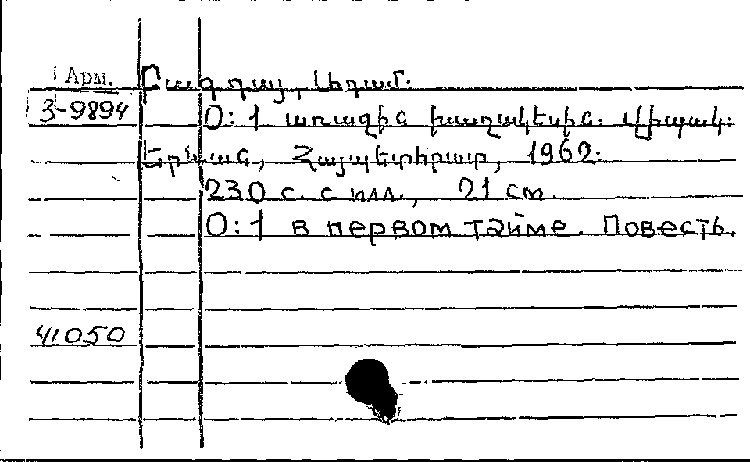 Арм. Բագդայ, Ադամ.
3-9894 0:1 առաջին խաղակեսին. Վիպակ:
Երևան, Հայպետհրատ, 1962.
230 с. с илл., 21 см.
0:1 в первом тайме. Повесть.
41050